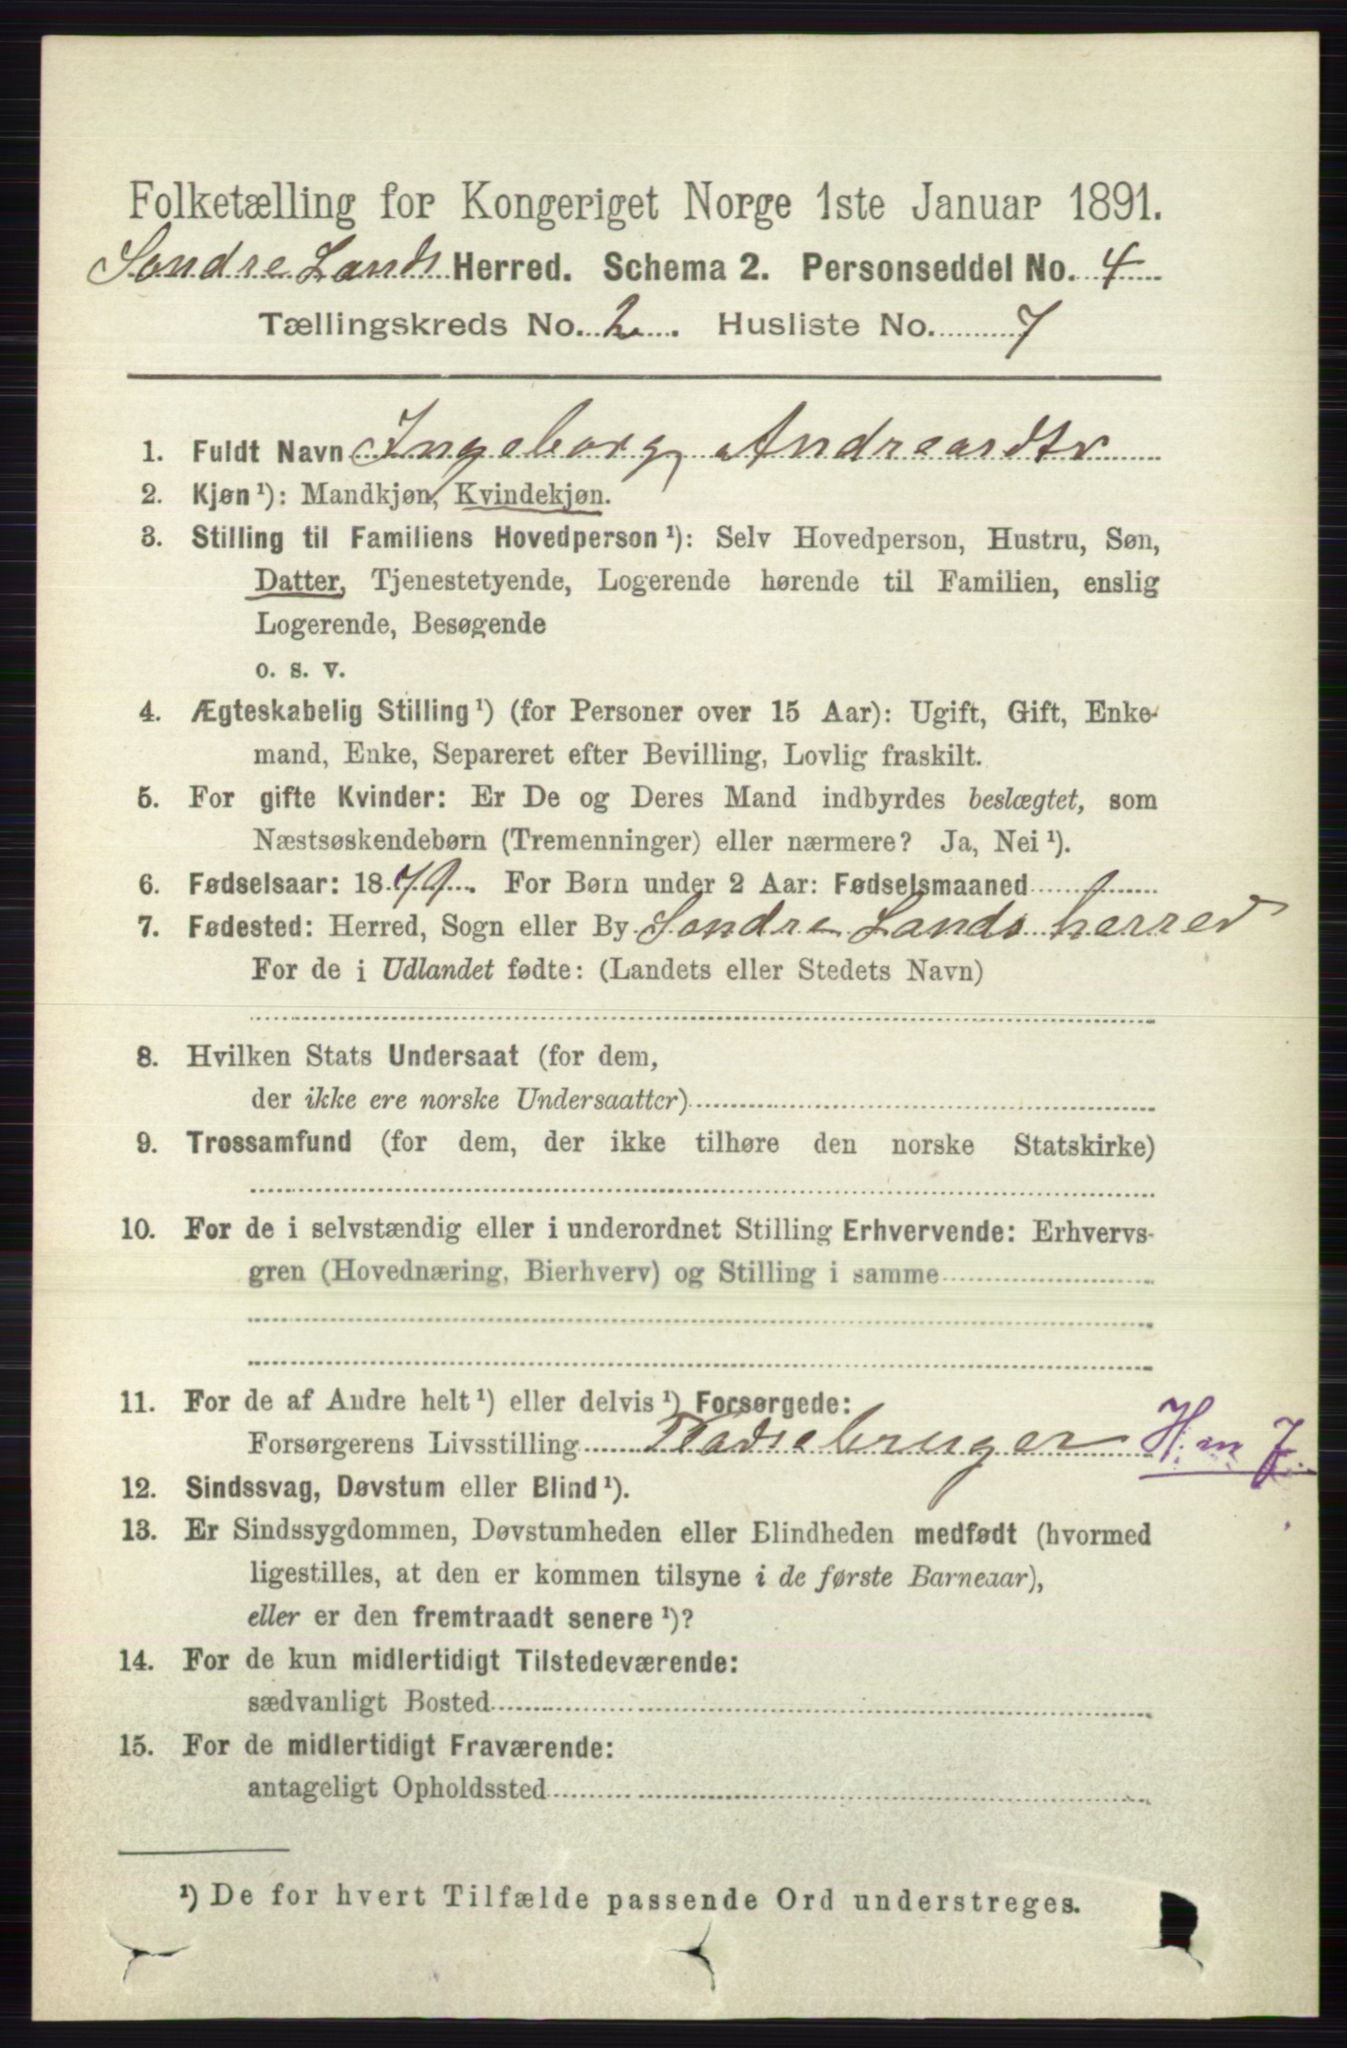 Folketælling for Kongeriget Norge 1ste Januar 1891.
Søndre Lands Herred. Schema 2. Personseddel No. 4
Tællingskreds No. 2. Husliste No. 7
1. Fuldt Navn Ingeborg Andreasdtr
2. Kjøn ¹): Mandkjøn, Kvindekjøn.
3. Stilling til Familiens Hovedperson ¹): Selv Hovedperson, Hustru, Søn,
Datter, Tjenestetyende, Logerende hørende til Familien, enslig
Logerende, Besøgende
o. s. v.
4. Ægteskabelig Stilling ¹) (for Personer over 15 Aar): Ugift, Gift, Enke-
mand, Enke, Separeret efter Bevilling, Lovlig fraskilt.
5. For gifte Kvinder: Er De og Deres Mand indbyrdes beslægtet, som
Næstsøskendebørn (Tremenninger) eller nærmere? Ja, Nei ¹).
6. Fødselsaar: 1879. For Børn under 2 Aar: Fødselsmaaned
7. Fødested: Herred, Sogn eller By Søndre Lands herred
For de i Udlandet fødte: (Landets eller Stedets Navn)
8. Hvilken Stats Undersaat (for dem,
der ikke ere norske Undersaatter)
9. Trossamfund (for dem, der ikke tilhøre den norske Statskirke)
10. For de i selvstændig eller i underordnet Stilling Erhvervende: Erhvervs-
gren (Hovednæring, Bierhverv) og Stilling i samme
11. For de af Andre helt ¹) eller delvis ¹) Forsørgede:
Forsørgerens Livsstilling Pladsebruger H. m J.
12. Sindssvag, Døvstum eller Blind ¹).
13. Er Sindssygdommen, Døvstumheden eller Blindheden medfødt (hvormed
ligestilles, at den er kommen tilsyne i de første Barneaar),
eller er den fremtraadt senere ¹)?
14. For de kun midlertidigt Tilstedeværende:
sædvanligt Bosted
15. For de midlertidigt Fraværende:
antageligt Opholdssted
¹) De for hvert Tilfælde passende Ord understreges.